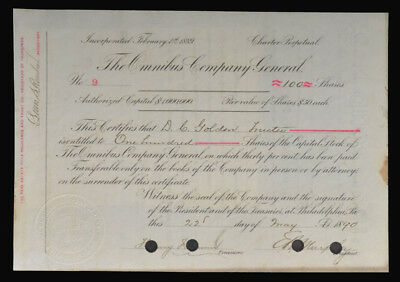 Incorporated February 1st 1889 Charter Perpetual.
The Omnibus Company General.
No 9 =100= Shares
Authorized Capital $1,000,000 Par value of Shares $50 each.
This Certifies that D. C. Golden Trustee
is entitled to One hundred Shares of the Capital Stock of
The Omnibus Company General, on which thirty percent has been paid
Transferable only on the books of the Company in person or by attorney
on the surrender of this certificate.
Witness the seal of the Company and the signature
of the President and of the Treasurer, at Philadelphia, Pa
this 22d day of May AD 1890
Treasurer